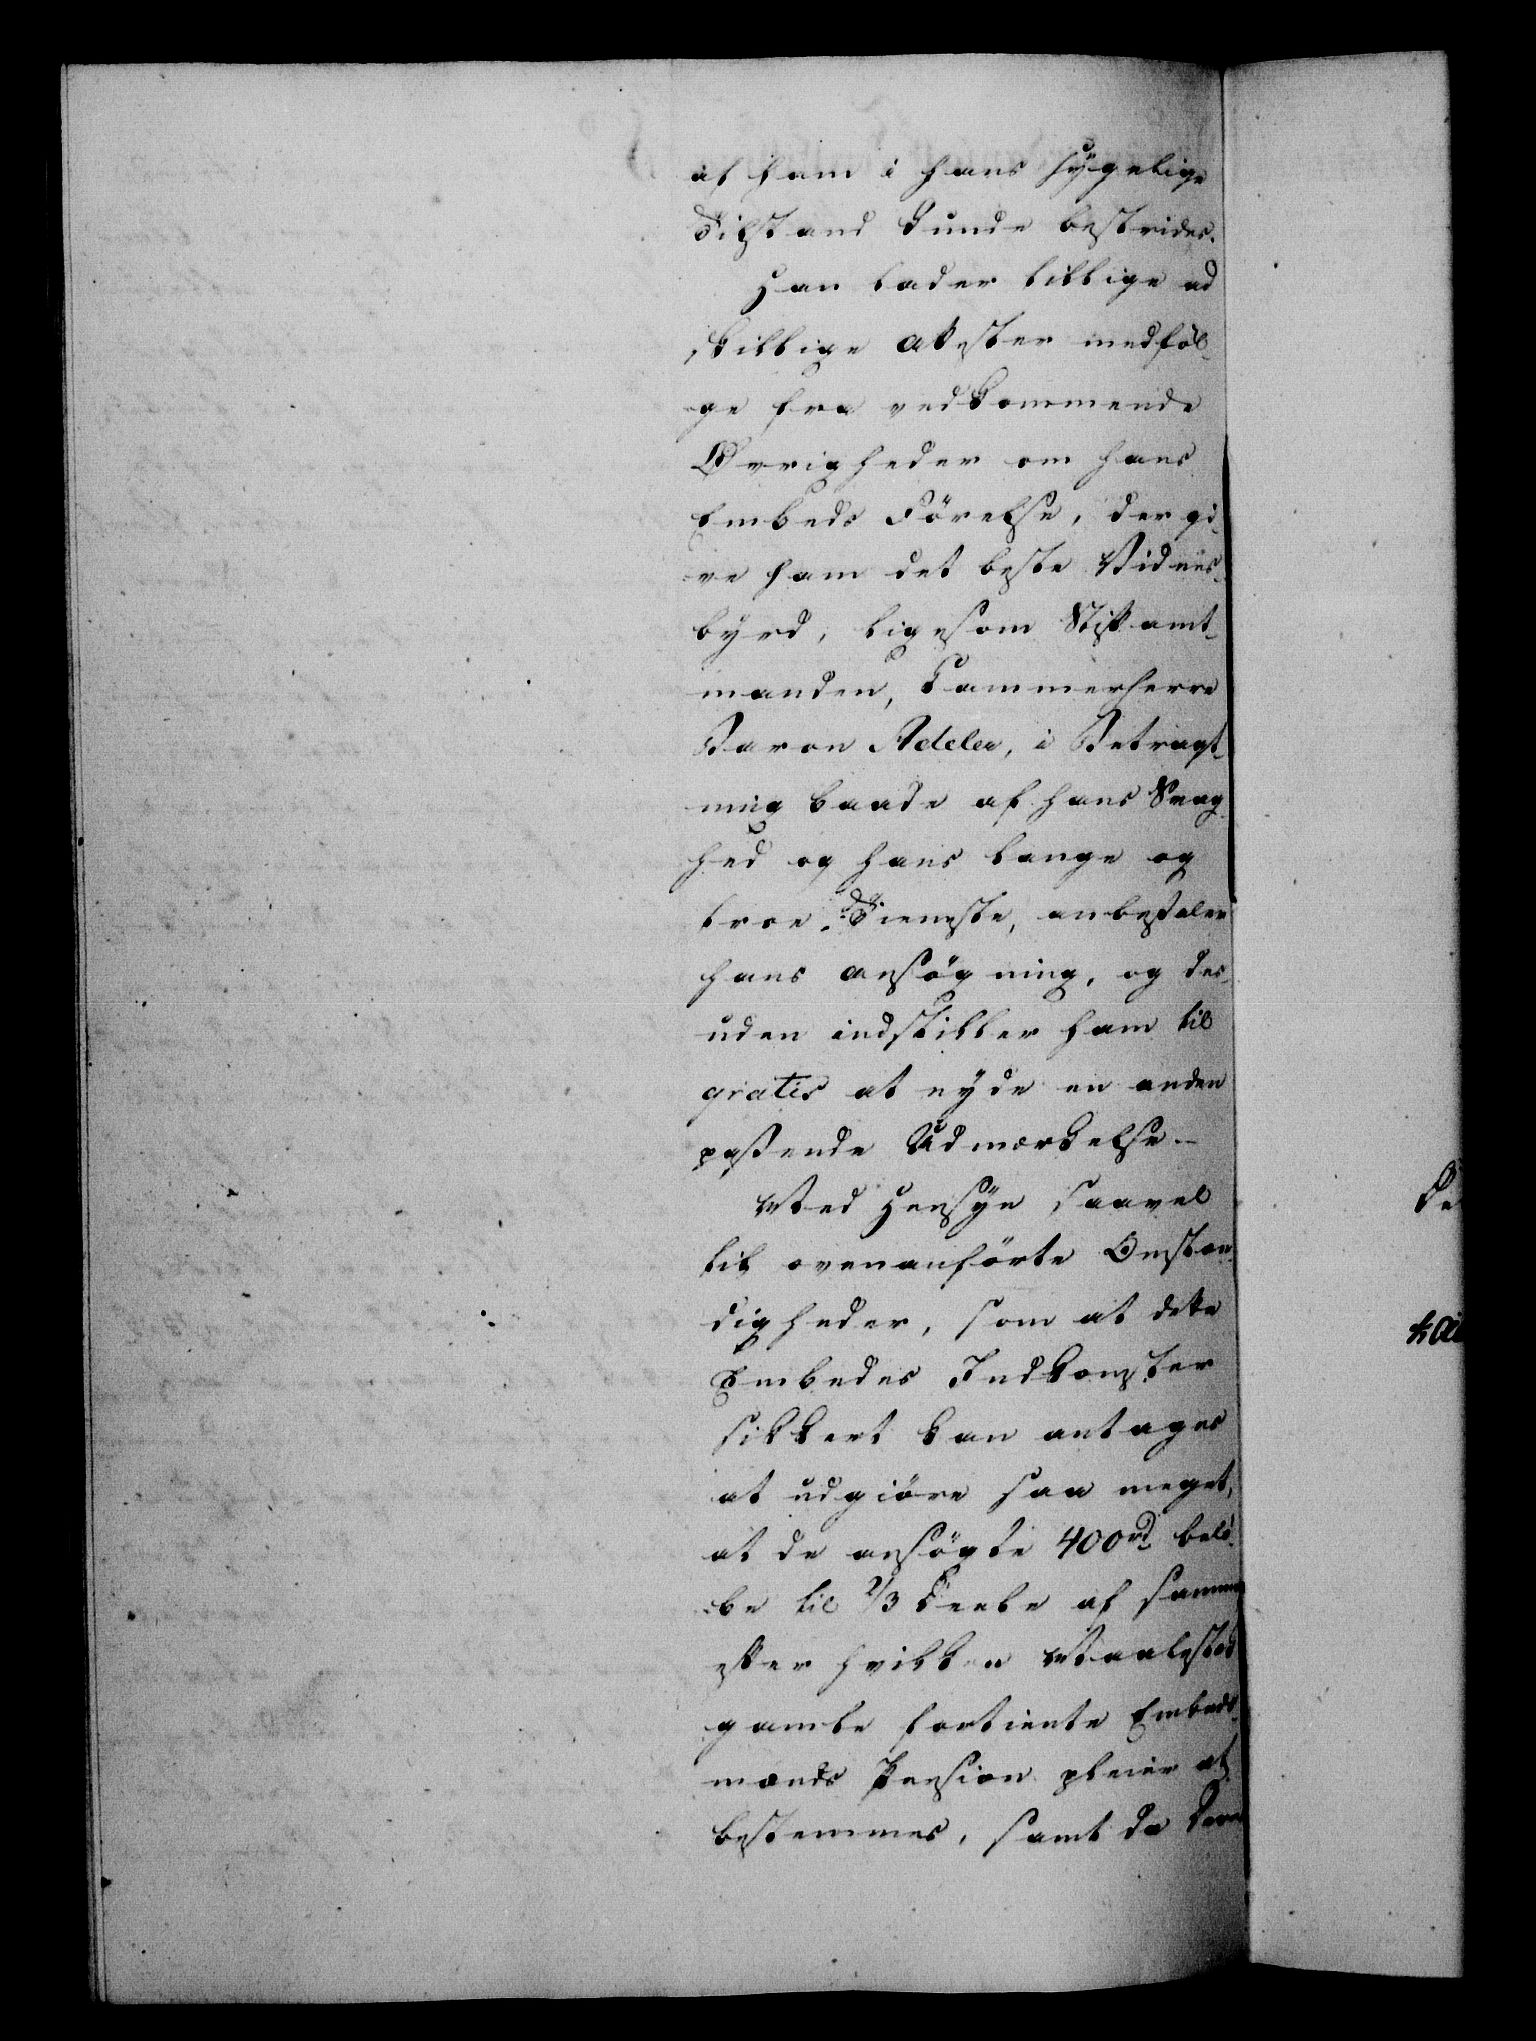 af ham i hans sygelige
Tilstand kunde bestrides.
Han lader tillige ad
skillige Atester medföl-
ge fra vedkommende
Øvrigheder om hans
Embeds Förelse, der gi-
ve ham det beste Vidnes-
byrd, ligesom Stiftamt-
manden, Kammerherre
Baron Adeler, i Betragt-
ning baade af hans Svag-
hed og hans lange og
troe Tieneste, anbefaler
hans Ansögning, og des-
uden indstiller ham til
gratis at nyde en anden
passende Udmærkelse.
Med Hensyn saavel
til ovenanförte Omstæn-
digheder, som at dette
Embedes Indkomster
sikkert kan antages
at udgiöre saa meget,
at de ansögte 400 rd belö-
be til 2/3 Deele af samme
efter hvilken Maalestok
gamle fortiente Embeds-
mænds Pension pleier at
bestemmes, samt da